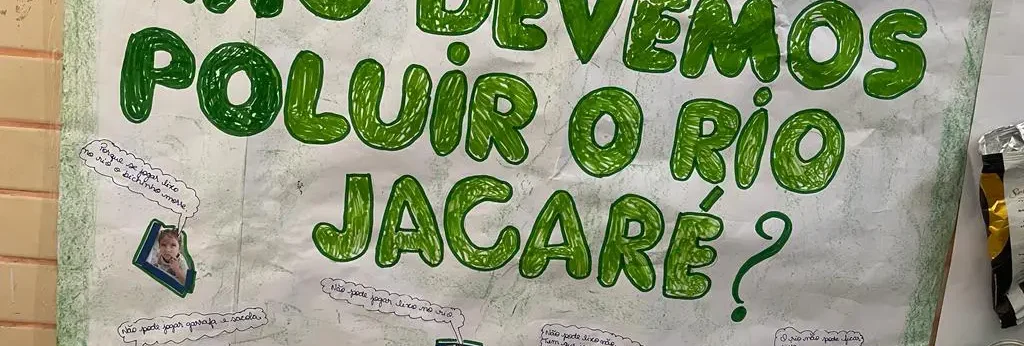 NÃO DEVEMOS
POLUIR O RIO
JACARÉ?
Porque se jogar lixo
no rio o bichinho morre
Não pode jogar garrafa e sacola.
Não pode jogar lixo no rio
Não pode lixo não
tem
O rio não pode ficar